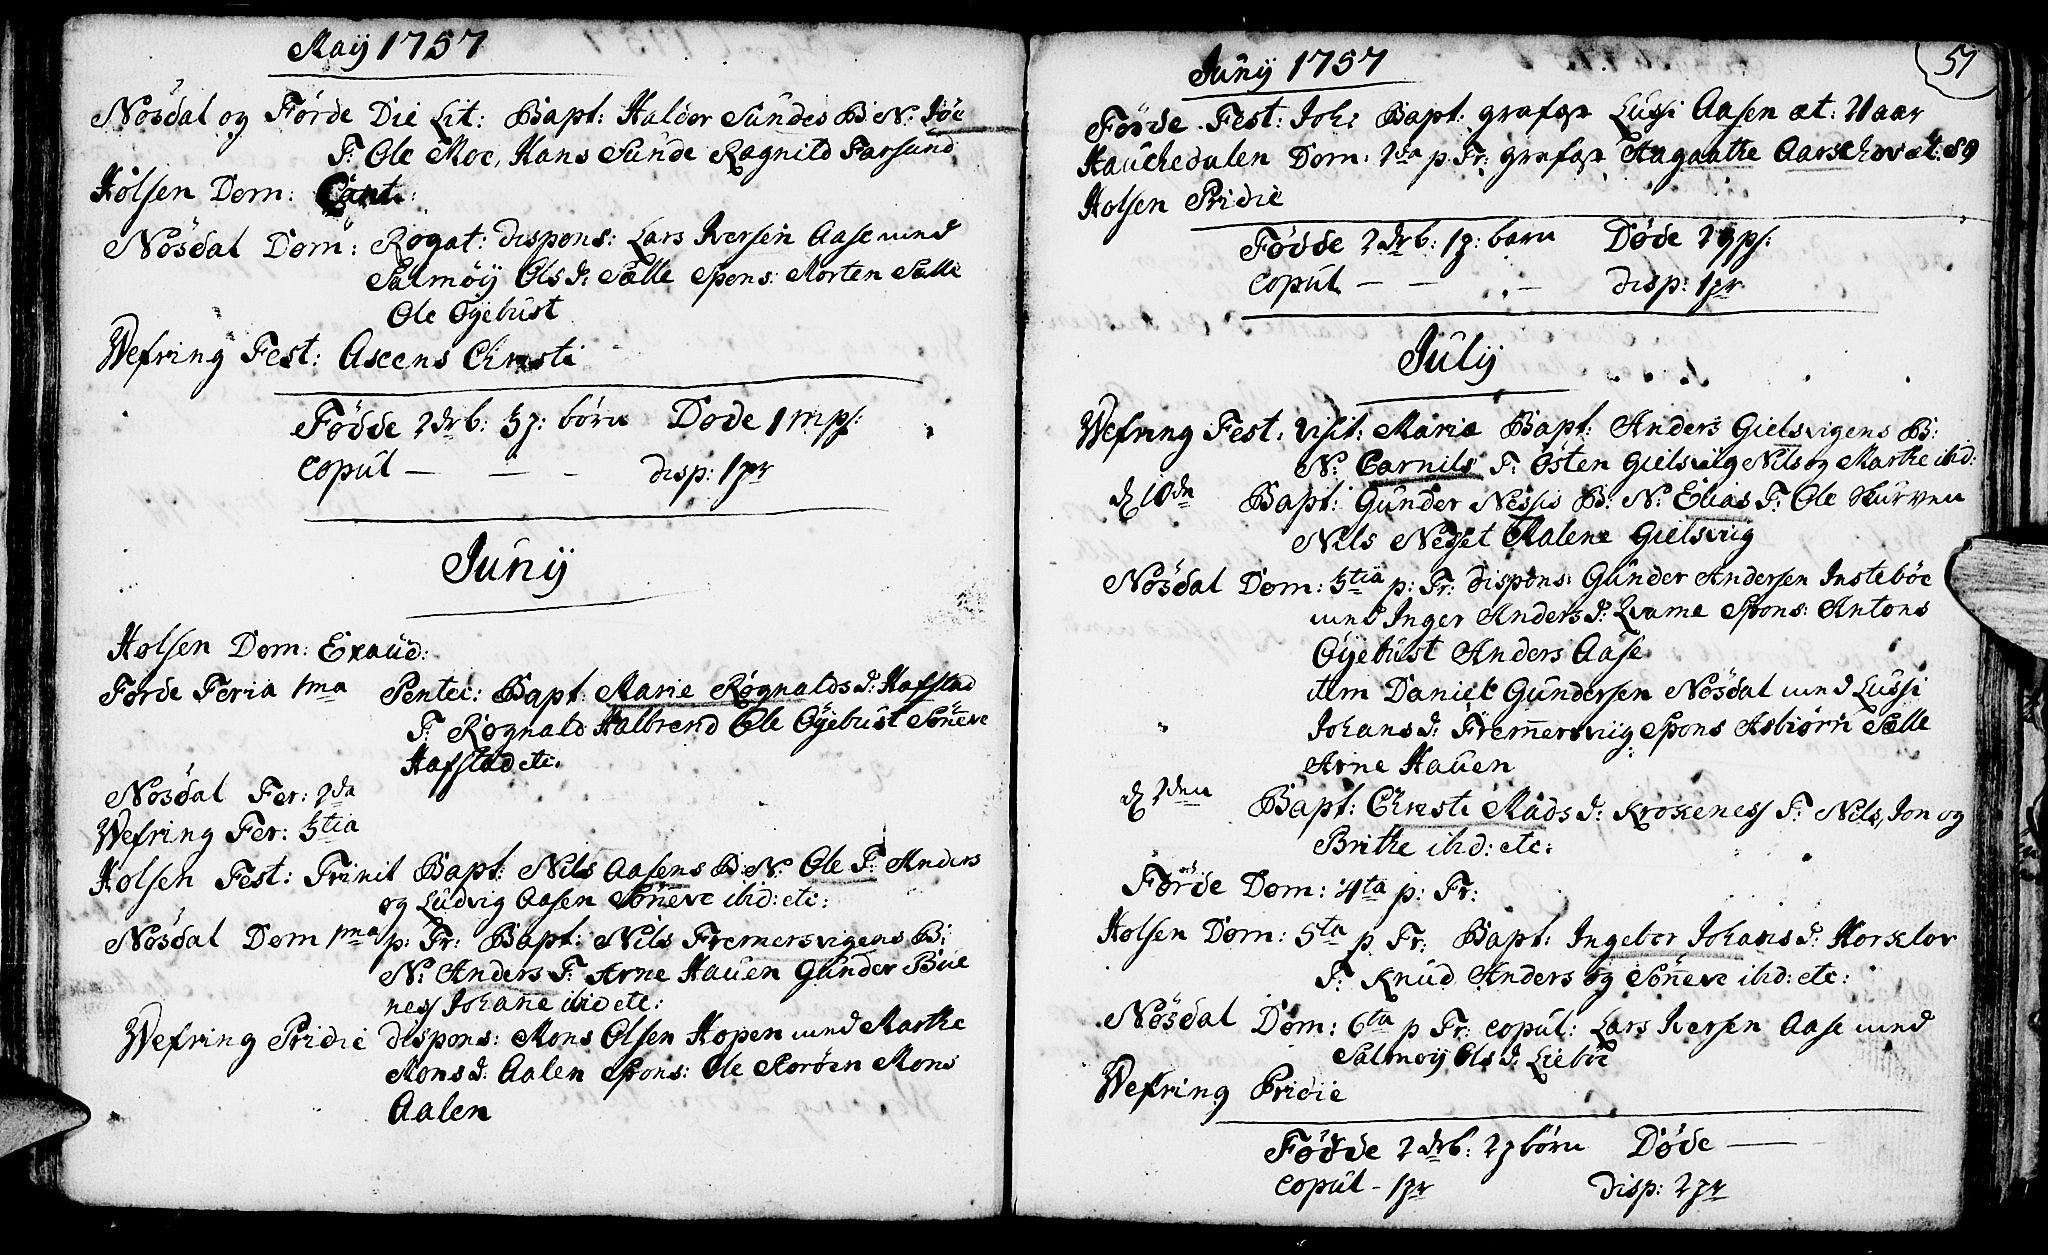 Maÿ 1757
Nösdal og Förde Die Lit: Bapt: Haldor Sundes B. N: Jöe
F: Ole Moe, Hans Sunde Ragnild Farsund
Holsen Dom: Cant:
Nösdal Dom: Rogat: dispons: Lars Iversen Aase und
Salmöÿ Ols d: Sælle Spons: Morten Sælle
Ole Öÿebust
Wefring Fest: Ascens Christi
Födde 2 drb: 3 p: börn Döde 1 m ps:
Copul — — — disp: 1 pr
Junÿ
Holsen Dom: Exaud:
Förde Feria 1ma Pentec: Bapt: Marie Rognalds d: Hafstad
F: Rognald Halbrend Ole Öÿebust Söneve
Hafstad etc.
Nösdal Fer: 2da
Wefring Fer: 3tia
Holsen Fest: Trinit Bapt: Nils Aasens B. N: Ole F: Anders
og Ludvig Aasen Söneve ibid: etc:
Nösdal Dom 1ma p: Tr: Bapt: Nils Fremersvigens B:
N: Anders F: Arne Hauen Gunder Bue
nes Johane ibid etc:
Wefring Pridie dispons: Mons Olsen Hopen und Marthe
Mons d: Aalen Spons: Ole Mons
Aalen
Junÿ 1757
57
Förde Fest: Joh: Bapt: grafæst Lussi Aasen æt: 2 aar
Hauchedalen Dom: 2da p. Tr: grafæst Aagaathe æt: 89
Holsen Pridie
Födde 2 drb: 1 p: barn Döde 2 qps:
Copul — — — disp: 1 pr
Julÿ
Wefring Fest: Visit: Mariæ Bapt: Anders Gielsvigens B:
N: Carnils F: Östen Gielsviig Nils og Marthe ibid:
d 10de Bapt: Gunder Nessis B: N: Elias F: Ole Skurven
Nils Nesset Malene Gielsvig
Nösdal Dom: 3tia p: Tr: dispons: Gunder Andersen Insteböe
und Inger Anders d: Qvame Spons: Antons
Öÿebust Anders Aase
item Daniel Gundersen Nösdal und Lussi
Johans d: Fremersviig Spons Asbiörn Sælle
Arne Hauen
d 2den Bapt: Christi Mads d: Krokenes F: Nils, Jon og
Brithe ibid: etc:
Förde Dom: 4ta p: Tr:
Holsen Dom: 5ta p Tr: Bapt: Ingebor Johans d: Horsclov
F: Knud Anders og Söneve ibid: etc:
Nösdal Dom: 6ta p Tr: copul: Lars Iversen Aase und
Salmöÿ Ols d: Lieböe
Wefring Pridie
Födde 2 drb: 2 p börn Döde —
Copul - 1 pr disp: 2 pr